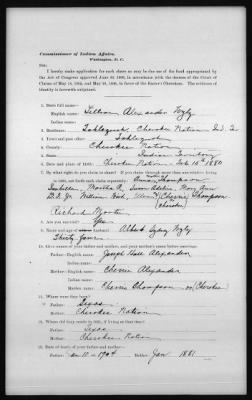 Commissioner of Indian Affairs,
Washington, D. C.
Sir:
I hereby make application for such share as may be due me of the fund appropriated by
the Act of Congress approved June 30, 1906, in accordance with the decrees of the Court of
Claims of May 18, 1905, and May 28, 1906, in favor of the Eastern Cherokees. The evidence of
identity is herewith subjoined.
1. State full name—
English name: Lillian Alexander
Indian name:
2. Residence: Tahlequah, Cherokee Nation Ind. T.
3. Town and post office: Tahlequah
4. County: Cherokee Nation
5. State: Indian Territory
6. Date and place of birth: Cherokee Nation - Feb 10th 1880
7. By what right do you claim to share? If you claim through more than one relative living
in 1851, set forth each claim separately: Thompson
Isabella, Martha A, Mary Ann
William Thompson
(Cherokee)
8. Are you married? Yes
9. Name and age of wife or husband: Albert Sydney
Thirty four
10. Give names of your father and mother, and your mother's name before marriage.
Father—English name: Joseph Alexander
Indian name:
Mother—English name: Cherrie Alexander
Indian name:
Maiden name: Cherrie Thompson or (Cherokee)
11. Where were they born?
Father: Texas
Mother: Cherokee Nation
12. Where did they reside in 1851, if living at that time?
Father: Texas
Mother: Cherokee Nation
13. Date of death of your father and mother—
Father: 1904 Mother: Jan 1881